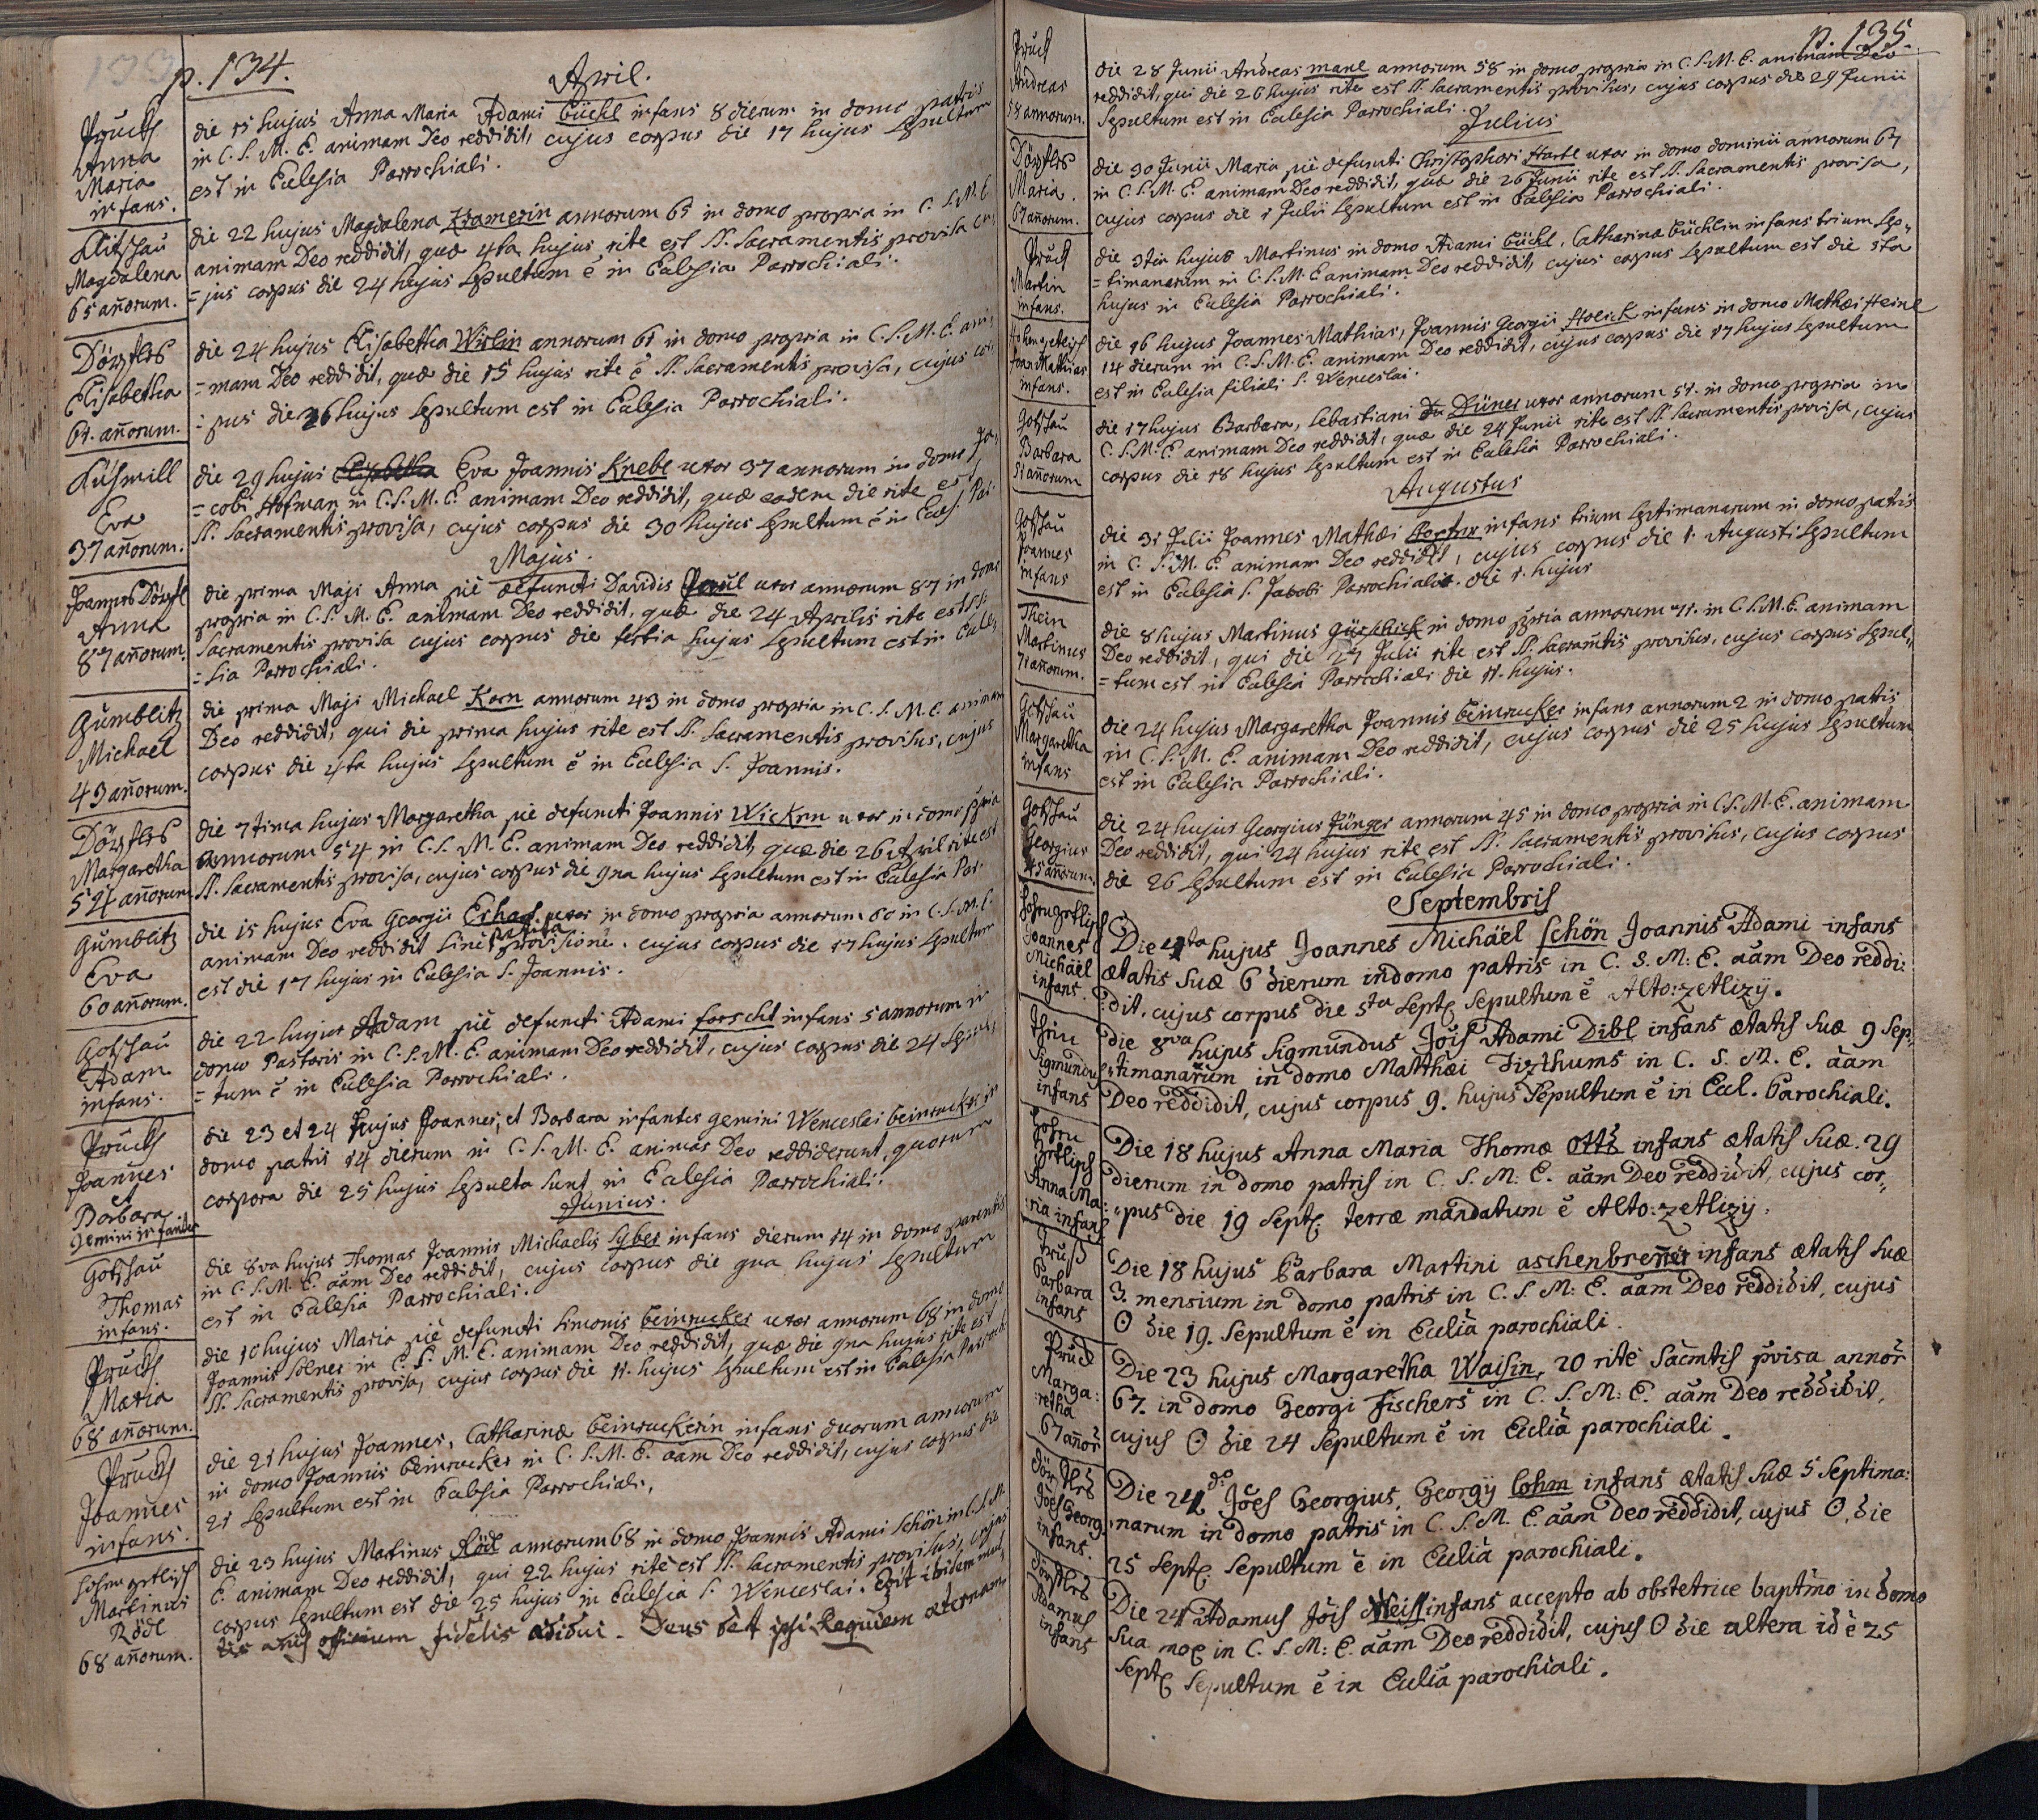 p. 134.
April.
Pruch
Anna
Maria
infans.
die 15 hujus Anna Maria Adami Büchl infans 8 dierum in domo patris
in C. S. M. E. animam Deo reddidit, cujus corpus die 17 hujus sepultum
est in Eclesia Parrochiali.
Klitschau
Magdalena
65 añorum.
die 22 hujus Magdalena Kramerin annorum 65 in domo propria in C. S. M. E.
animam Deo reddidit, quæ 4ta hujus rite est SS. Sacramentis provisa cu,
=jus corpus die 24 hujus sepultum ē in Eclesia Parrochiali.
Dörfles
Elisabetha
61. añorum.
die 24 hujus Elisabetha Wirlin annorum 61 in domo propria in C. S. M. E. ani,
=mam Deo reddidit, quæ die 15 hujus rite ē SS. Sacramentis provisa, cujus cor
=pus die 26 hujus sepultum est in Eclesia Parrochiali.
Kühmill
Eva
37 añorum.
die 29 hujus Elisabetha Eva Joannis Knebl uxor 37 annorum in domo Ja,
=cobi Hofman in C. S. M. E. animam Deo reddidit, quæ eadem die rite est
SS. Sacramentis provisa, cujus corpus die 30 hujus sepultum ē in Ecles. Par.
Majus.
Joannes Dörfl
Anna
87 añorum.
die prima Maji Anna piè defuncti Davidis uxor annorum 87 in domo
propria in C. S. M. E. animam Deo reddidit, quæ die 24 Aprilis rite est SS.
Sacramentis provisa cujus corpus die tertia hujus sepultum est in Ecle,
=sia Parrochiali.
Gumblitz
Michael
43 añorum.
die prima Maji Michael Korn annorum 43 in domo propria in C. S. M. E. animam
Deo reddidit, qui die prima hujus rite est SS. Sacramentis provisus, cujus
corpus die 4ta hujus sepultum ē in Eclesia S. Joannis.
Dörfles
Margaretha
54 añorum
die 7tima hujus Margaretha piè defuncti Joannis Wickrn uxor in domo ppria
annorum 54 in C. S. M. E. animam Deo reddidit, quæ die 26 April rite est
SS. Sacramentis provisa, cujus corpus die 9na hujus sepultum est in Eclesia Par.
Gumblitz
Eva
60 añorum.
die 15 hujus Eva Georgii Erhad. uxor in domo propria annorum 60 in C. S. M. E.
animam Deo reddidit sine provisione. cujus corpus die 17 hujus sepultum
est die 17 hujus in Eclesia S. Joannis.
Gotschau
Adam
infans.
die 22 hujus Adam piè defuncti Adami forscht infans 5 annorum in
domo Pastoris in C. S. M. E. animam Deo reddidit, cujus corpus die 24 sepul,
=tum ē in Eclesia Parrochiali.
Pruch
Joannes
et
Barbara
Gemini infantes
die 23 et 24 hujus Joannes, et Barbara infantes gemini Wenceslai beinrucker in
domo patris 14 dierum in C. S. M. E. animas Deo reddiderunt, quorum
corpora die 25 hujus sepulta sunt in Eclesia Parrochiali.
Junius.
Gotschau
Thomas
infans.
die 8va hujus Thomas Joannis Michaelis Syber infans dierum 14 in domo parentis
in C. S. M. E. aãm Deo reddidit, cujus corpus die 9na hujus sepultum
est in Eclesia Parrochiali.
Pruch
Maria
68 añorum.
die 10 hujus Maria piè defuncti Simonis beinrucker uxor annorum 68 in domo
Joannis Solner in C. S. M. E. animam Deo reddidit, quæ die 9na hujus rite est
SS. Sacramentis provisa, cujus corpus die 11. hujus sepultum est in Eclesia Parroch
Pruch
Joannes
infans.
die 21 hujus Joannes, Catharinæ beinruckerin infans duorum annorum
in domo Joannis beinrucker in C. S. M. E. aãm Deo reddidit, cujus corpus die
21 sepultum est in Eclesia Parrochiali.
Hohenzetlisch
Martinus
Rödl
68 añorum.
die 23 hujus Martinus Rödl annorum 68 in domo Joannis Adami Schön in C. S. M.
E. animam Deo reddidit, qui 22 hujus rite est SS. Sacramentis provisus, cujus
corpus sepultum est die 25 hujus in Eclesia S. Wenceslai. Erit ibidem mul,
tis añis officium fidelis ædidui. Deus det ipsi Requiem æternam.
p. 135.
Pruch
Andreas
58 annorum.
die 28 Junii Andreas manl annorum 58 in domo propria in C. S. M. E. animam Deo
reddidit, qui die 26 hujus rite est SS. Sacramentis provisus, cujus corpus die 29 Junii
sepultum est in Eclesia Parrochiali.
Julius
Dörfles
Maria.
67 añorum.
die 30 Junii Maria piè defuncti Christophori Hartl uxor in domo dominii annorum 67
in C. S. M. E. animam Deo reddidit, quæ die 26 Junii rite est SS. Sacramentis provisa,
cujus corpus die 1 Julii sepultum est in Eclesia Parrochiali.
Pruch
Martin
infans.
die 3tia hujus Martinus in domo Adami Büchl, Catharinæ Büchlin infans trium sep,
=timanarum in C. S. M. E animam Deo reddidit, cujus corpus sepultum est die 5ta
hujus in Eclesia Parrochiali.
Hohenzetlisch
Joan Mathias
infans.
die 16 hujus Joannes Mathias, Joannis Georgii Stoeick infans in domo Mathæi Heinl
14 dierum in C. S. M. E. animam Deo reddidit, cujus corpus die 17 hujus sepultum
est in Eclesia filiali S. Wenceslai.
Gotschau
Barbara
51 añorum
die 17 hujus Barbara, Sebastiani Düner uxor annorum 51. in domo propria in
C. S. M. E animam Deo reddidit, quæ die 24 Junii rite est SS Sacramentis provisa, cujus
corpus die 18 hujus sepultum est in Eclesia Parrochiali.
Augustus
Gotschau
Joannes
infans
die 31 Julii Joannes Mathæi infans trium septimanarum in domo patris
in C. S. M. E. animam Deo reddidit, cujus corpus die 1. Augusti sepultum
est in Eclesia S. Jacobi Parochialis. die 1. hujus
Thein
Martinus
71 añorum.
die 8 hujus Martinus Gürschick in domo ppria annorum 71. in C. S. M. E. animam
Deo reddidit, qui die 27 Julii rite est SS. Sacramtis provisus, cujus corpus sepul,,
=tum est in Eclesia Parrochiali die 11. hujus.
Gotschau
Margaretha
infans
die 24 hujus Margaretha Joannis beinrucker infans annorum 2 in domo patris
in C. S. M. E. animam Deo reddidit, cujus corpus die 25 hujus sepultum
est in Eclesia Parrochiali.
Gotschau
Georgius
45 añorum.
die 24 hujus Georgius Jünger annorum 45 in domo propria in C. S. M. E. animam
Deo reddidit, qui 24 hujus rite est SS. Sacramentis provisus, cujus corpus
die 26 sepultum est in Eclesia Parrochiali.
Septembris
Hohnzetlisch
Joannes
Michäel
infans.
Die 4ta hujus Joannes Michäel Schön Joannis Adami infans
ætatis suæ 6 dierum in domo patris in C. S. M: E. aãm Deo reddi:
:dit, cujus corpus die 5ta Sept. sepultum ē Alto:zetlizÿ.
thin
Sigmundus
infans
die 8va hujus Sigmundus Jöis Adami Dibl infans ætatis suæ 9 sep:
:timanarum in domo Matthæi Fizthums in C. S. M. E. aãm
Deo reddidit, cujus corpus 9. hujus sepultum ē in Ecl. Parochiali.
Hohn
zetlisch
Anna Ma:
:ria infans
Die 18 hujus Anna Maria Thomæ Otts infans ætatis suæ. 29
dierum in domo patris in C. S. M: E. aãm Deo reddidit, cujus cor,,
,,pus die 19 Sept. terræ mandatum ē Alto:zetlizÿ.
Pruß
Barbara
infans
Die 18 hujus Barbara Martini aschenbreñer infans ætatis suæ
3 mensium in domo patris in C. S. M: E. aãm Deo reddidit, cujus
O die 19. sepultum ē in Ecliã parochiali.
Prud
Marga:
:retha
67 añor
Die 23 hujus Margaretha Waisin, 20 rite Sacmtis pvisa annor
67. in domo Georgi Fischers in C. S. M: E. aãm Deo reddidit,
cujus O die 24 sepultum ē in Ecliã parochiali.
Dörfles
Jöes Georg.
infans.
Die 24. do Jöes Georgius, Georgÿ Cohm infans ætatis suæ 5 septima:
:narum in domo patris in C. S. M. E. aãm Deo reddidit, cujus O, die
25 Sept. sepultum ē in Ecliã parochiali.
Dörfles
Adamus
infans
Die 24 Adamus Jöis Weiss infans accepto ab obstetrice baptmo in domo
sua mox in C. S. M: E. aãm Deo reddidit, cujus O die altera id ē 25
Sept. sepultum ē in Ecliã parochiali.